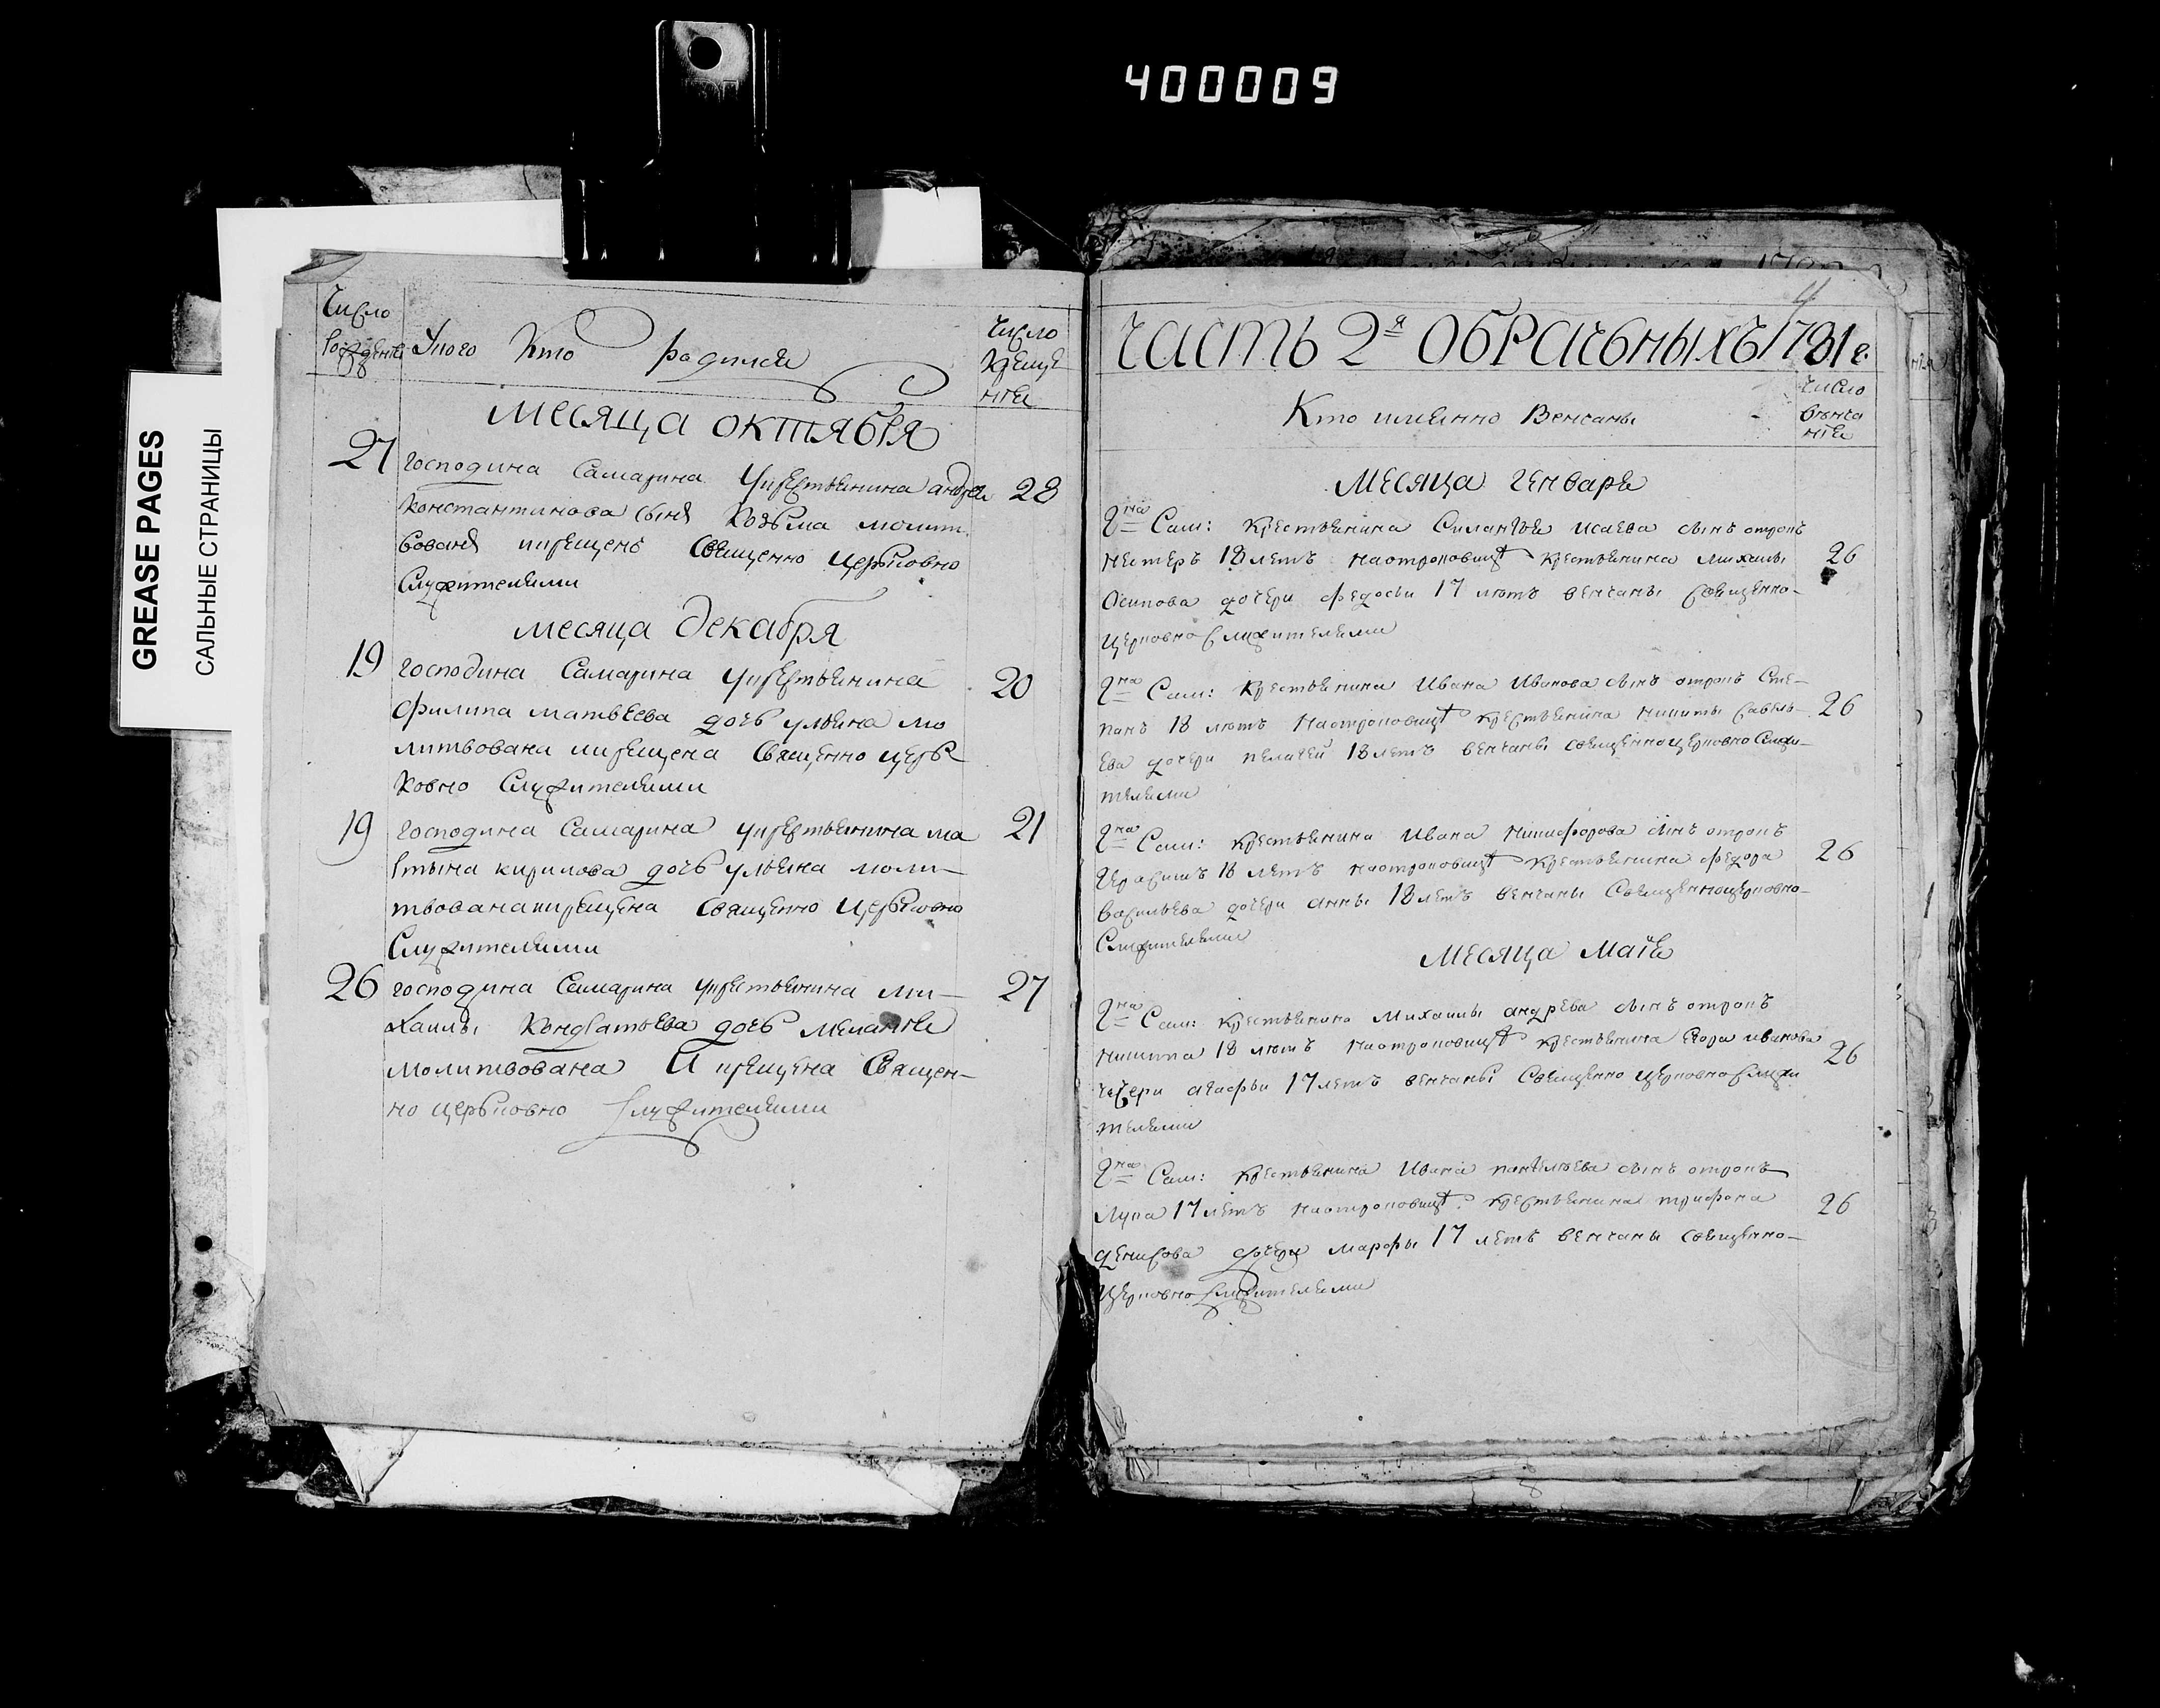 400009
GREASE PAGES
САЛЬНЫЕ СТРАНИЦЫ
Число рождения
У кого кто родился
Число крещения
месяца октября
27 господина Самарина у крестьянина андрея 28
константинова сынъ козьма молит
вованъ икрещенъ Священно церьковно
Служителями
месяца декабря
19 господина Самарина у крестьянина 20
филипа матвеева дочь ульяна мо
литвована икрещена Священно церь
ковно Служителями
19 господина Самарина у крестьянина ма 21
ртына кирилова дочь ульяна моли
твована икрещена Священно церьковно
Служителями
26 господина Самарина у крестьянина ми 27
хаилы кондратьева дочь мелания
молитвована и крещена Священ
но церьковно Служителями
4
часть 2я обрачьныхъ 1781 г.
Кто имянно венчаны
число венчания
месяца генваря
Гна Сам: крестьянина Силантья исаева сынъ отрокъ
нестеръ 18 летъ наотроковице крестьянина михаилы 26
Осипова дочери федосьи 17 летъ венчаны священно
церковно служителями
Гна Сам: крестьянина Ивана Иванова сынъ отрокъ Сте
панъ 18 летъ наотроковице крестьянина никиты савель 26
ева дочери пелагеи 18 летъ венчаны священноцерковно служи
телями
Гна Сам: крестьянина Ивана никифорова сынъ отрокъ
Герасимъ 18 летъ наотроковице крестьянина федора 26
васильева дочери анны 18 летъ венчаны Священноцерковно
Служителями
месяца маия
Гна Сам: крестьянина михаилы андреева сынъ отрокъ
никита 18 летъ наотроковице крестьянина Егора иванова 26
дочери агафьи 17 летъ венчаны Священно церковно служи
телями
Гна Сам: крестьянина Ивана пантелеева сынъ отрокъ
лука 17 летъ наотроковице крестьянина трифона 26
денисова дочери марфы 17 летъ венчаны священно
церковно служителями